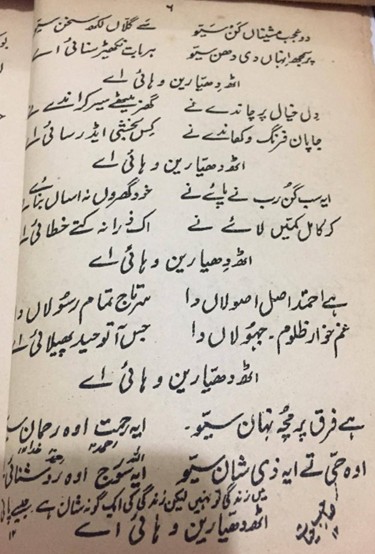 ۶
دو عجب مشیناں کن سیّو سے گلاں لکھ سخن سیّو
پر کچھ انہاں دی دھن سیّو ہر بات نکھیڑ سنائی اے
اٹھ دھیّا رین وہائی اے
دل خیال پر چاندے نے گھر بیٹھے سیر کراندے نے
جاپان فرنگ وکھاندے نے کس بخشی ایڈ رسائی اے
اٹھ دھیّا رین وہائی اے
ایہ سب گن رب نے پائے نے خود گھروں نہ اساں بنائے
کر کامل نکتیں لائے نے اک ذرا نہ کتے خطائی اے
اٹھ دھیّا رین وہائی اے
ہے احمد اصل اصولاں دا سرتاج تمام رسولاں دا
غم خوار ظلوم جہولاں دا جس آ توحید پھیلائی اے
اٹھ دھیّا رین وہائی اے
ہے فرق پر مچھ نہان سیّو ایہ رحمت اوہ رحمان
اوہ حی تے ایہ ذی شان سیّو ایہ سورج اوہ رشنائی
میں زندگی تو نہیں لیکن زندگی کی ایک گونہ شان ہے جیسے
اٹھ دھیّا رین وہائی اے
۱۲